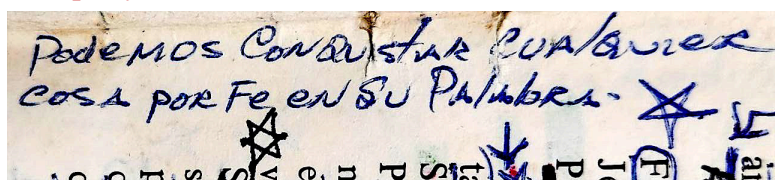 PodeMOS CONQUIStAR CUAlquiER
COSA POR Fe eN SU PAlAbRA.